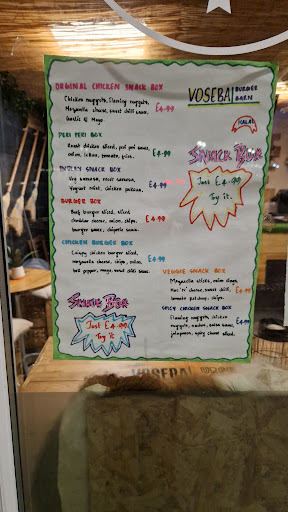 ORGINAL CHICKEN SNACK BOX
Chicken nuggets, flaming nuggets,
Mozarella cheese, sweet chilli sauce,
Garlic & Mayo
£4.99
VOSEBA BURGER
BARN
HALAL
PERI PERI BOX
sliced, peri peri sauce,
onion, lettuce, tomato,
£4.99
SNACK BOX
Just £4.99
Try it.
INDIAN SNACK BOX
Veg samosa,
Yogurt mint, chicken pakora,
£4.99
BURGER BOX
Beef burger sliced, sliced
cheddar cheese, onion, chips,
burger sauce, chipotle sauce.
£4.99
CHICKEN BURGER BOX
Crispy chicken burger sliced,
mozzarella cheese, chips, onion,
bell pepper, mayo, sweet chilli sauce.
£4.99
SNACK BOX
Just £4.99
Try it
VEGGIE SNACK BOX
Mozarella sticks, onion rings,
Mac 'n' cheese, sweet chilli,
tomato ketchup, chips.
£4.99
SPICY CHICKEN SNACK BOX
Flaming nuggets, chicken
nuggets, nachos, salsa sauce,
jalapenos, spicy cheese sliced.
£4.99
VOSEBA